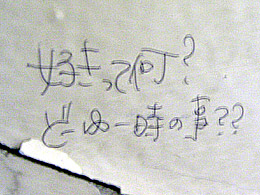 好きって何?
どーゆー時の事??